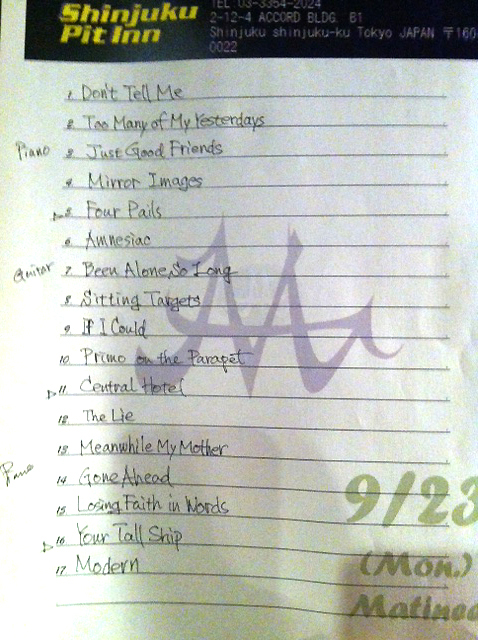 Shinjuku
Pit Inn
TEL 03-3354-2024
2-12-4 ACCORD BLDG. B1
Shinjuku shinjuku-ku Tokyo JAPAN 〒160
0022
1 Don't Tell Me
2 Too Many of My Yesterdays
Piano 3 Just Good Friends
4 Mirror Images
▷5 Four Pails
6 Amnesiac
Guitar 7 Been Alone So Long
8 Sitting Targets
9 If I Could
10 Primo on the Parapet
▷11 Central Hotel
12 The Lie
13 Meanwhile My Mother
Piano 14 Gone Ahead
15 Losing Faith in Words
▷16 Your Tall Ship
17 Modern
9/23
(Mon.)
Matinee